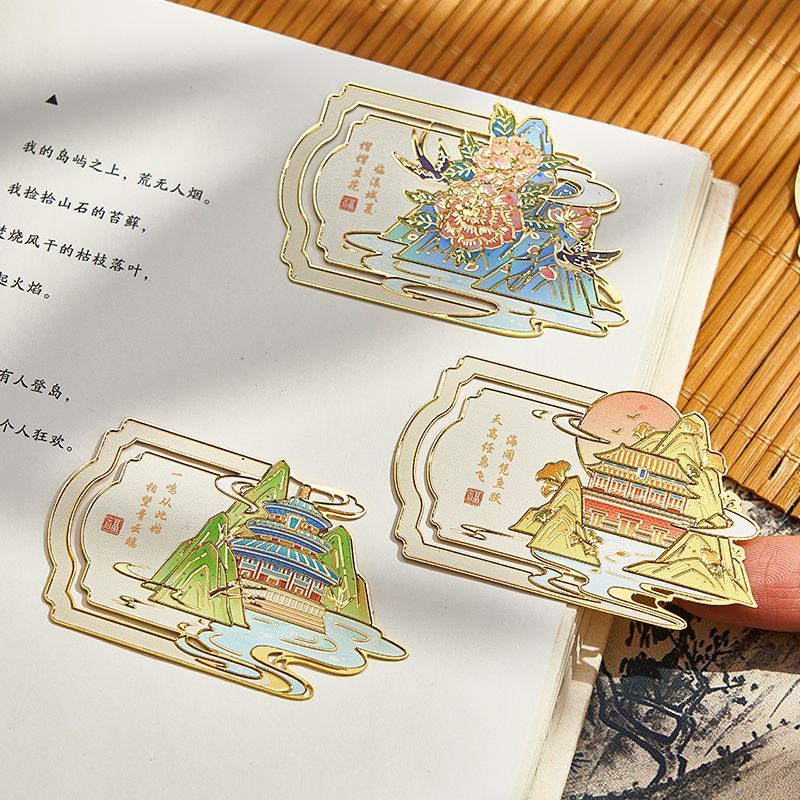 ▲
我的岛屿之上，荒无人烟。
我捡拾山石的苔藓，
烧风干的枯枝落叶，
起火焰。
有人登岛，
个人狂欢。
临溪城夏
熠熠生花
福
海阔凭鱼跃
天高任鸟飞
福
一鸣从此始
相望青云端
福